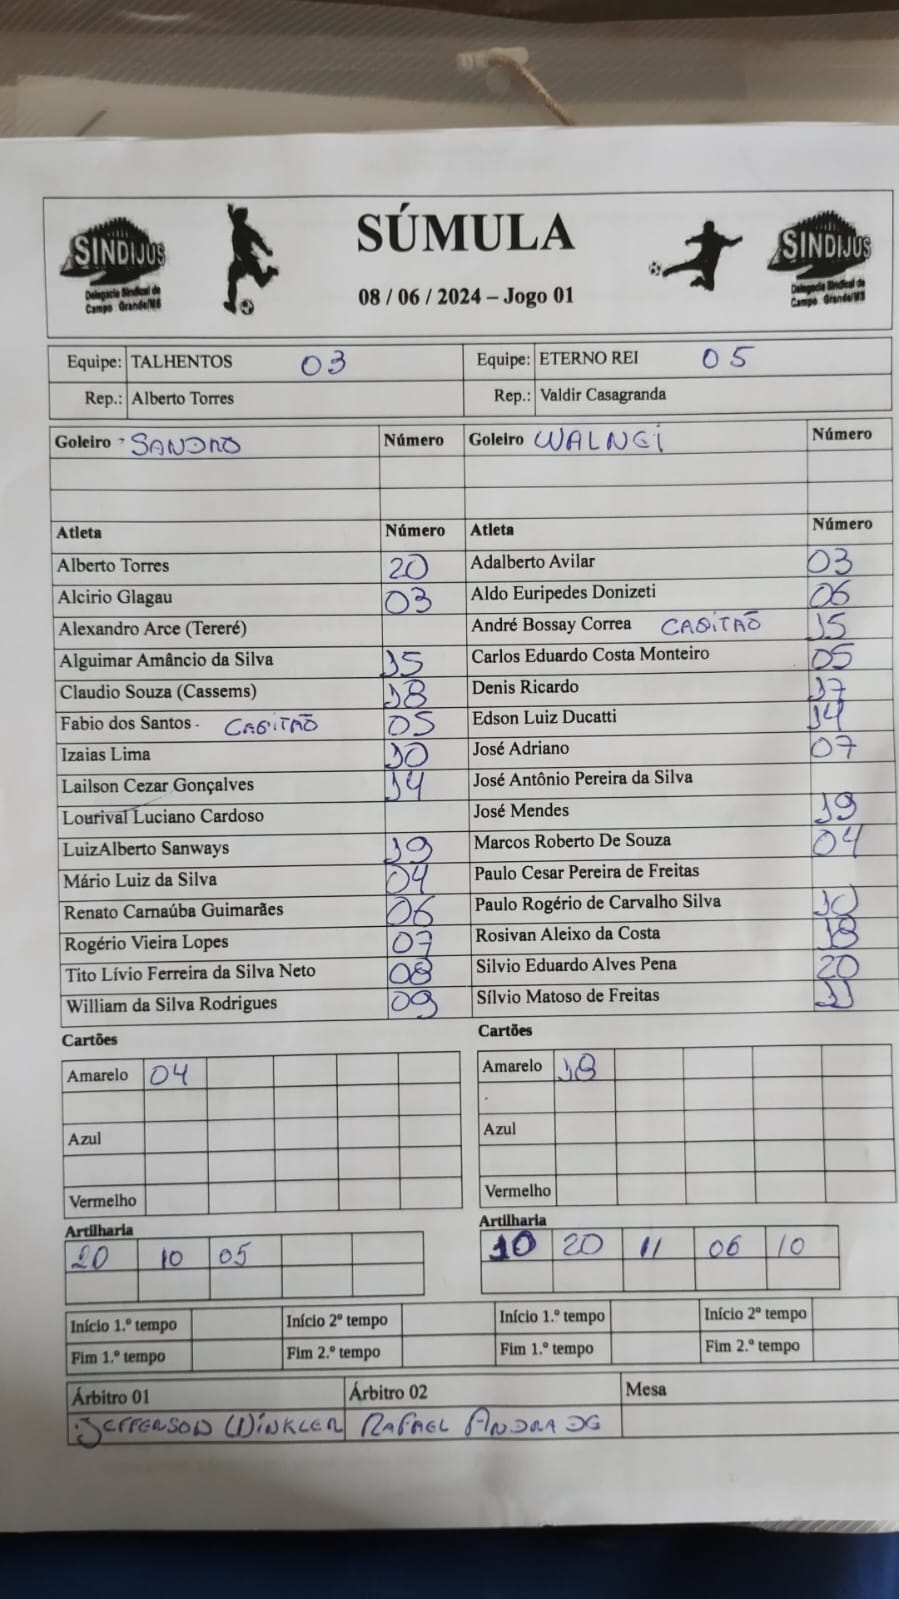 SINDIJUS
Delegacia Sindical de
Campo Grande/MS
SÚMULA
08 / 06 / 2024 – Jogo 01
SINDIJUS
Delegacia Sindical de
Campo Grande/MS
Equipe: TALHENTOS 03 Equipe: ETERNO REI 05
Rep.: Alberto Torres Rep.: Valdir Casagranda
Goleiro SANDRO Número Goleiro WALNEI Número
Atleta Número Atleta Número
Alberto Torres 20 Adalberto Avilar 03
Alcirio Glagau 03 Aldo Euripedes Donizeti 06
Alexandro Arce (Tereré) André Bossay Correa CAPITÃO 15
Alguimar Amâncio da Silva 15 Carlos Eduardo Costa Monteiro 05
Claudio Souza (Cassems) 18 Denis Ricardo 17
Fabio dos Santos - CAPITÃO 05 Edson Luiz Ducatti 14
Izaias Lima 10 José Adriano 07
Lailson Cezar Gonçalves 14 José Antônio Pereira da Silva
Lourival Luciano Cardoso José Mendes 19
LuizAlberto Sanways 19 Marcos Roberto De Souza 04
Mário Luiz da Silva 04 Paulo Cesar Pereira de Freitas
Renato Carnaúba Guimarães 06 Paulo Rogério de Carvalho Silva 10
Rogério Vieira Lopes 07 Rosivan Aleixo da Costa 18
Tito Lívio Ferreira da Silva Neto 08 Silvio Eduardo Alves Pena 20
William da Silva Rodrigues 09 Sílvio Matoso de Freitas 11
Cartões Cartões
Amarelo 04 Amarelo 18
Azul Azul
Vermelho Vermelho
Artilharia Artilharia
20 10 05 10 20 11 06 10
Início 1.º tempo Início 2º tempo Início 1.º tempo Início 2º tempo
Fim 1.º tempo Fim 2.º tempo Fim 1.º tempo Fim 2.º tempo
Árbitro 01 Árbitro 02 Mesa
JEFFERSON WINKLER RAFAEL ANDRADE